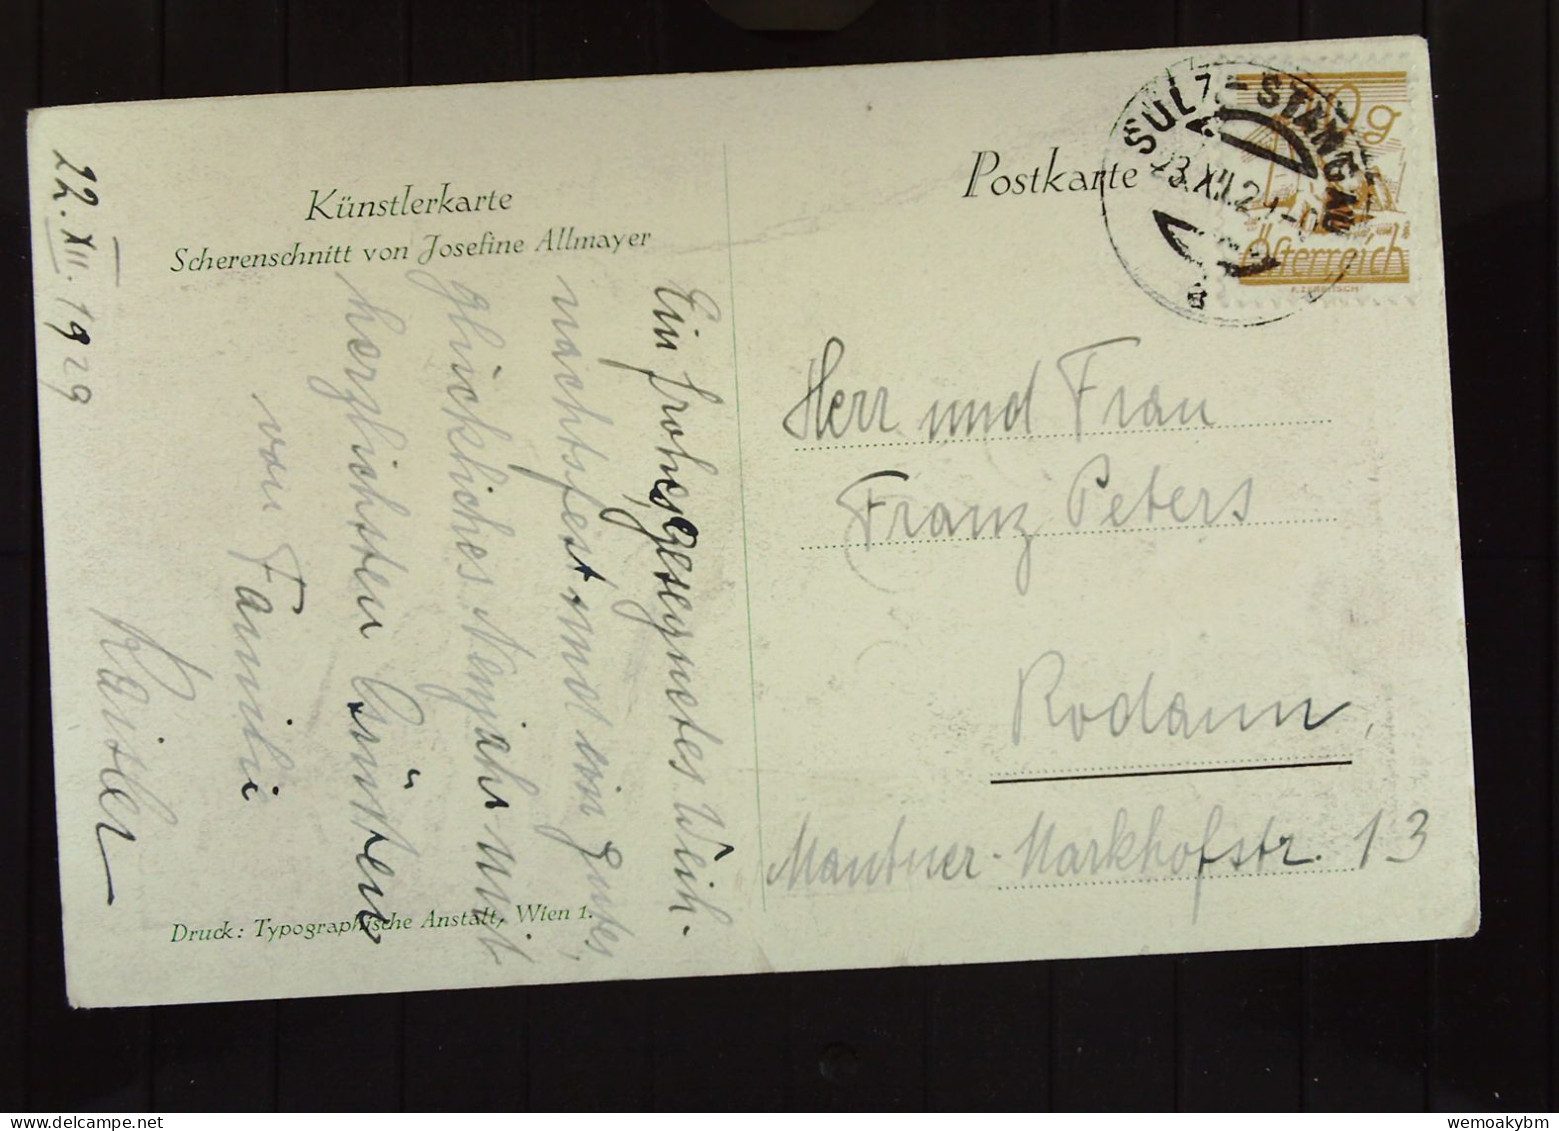 22. XII. 1929
Künstlerkarte
Scherenschnitt von Josefine Allmayer
Ein frohes, gesegnetes Weih-
nachtsfest und ein gutes,
glückliches Neujahr mit
herzlichsten Grüßen
von Familie
Druck: Typographische Anstalt, Wien 1.
Postkarte
SULZ-STANGAU
23.XII.29
Österreich
Herr und Frau
Franz Peters
Rodaun,
Mautner-Markhofstr. 13
wemoakybm